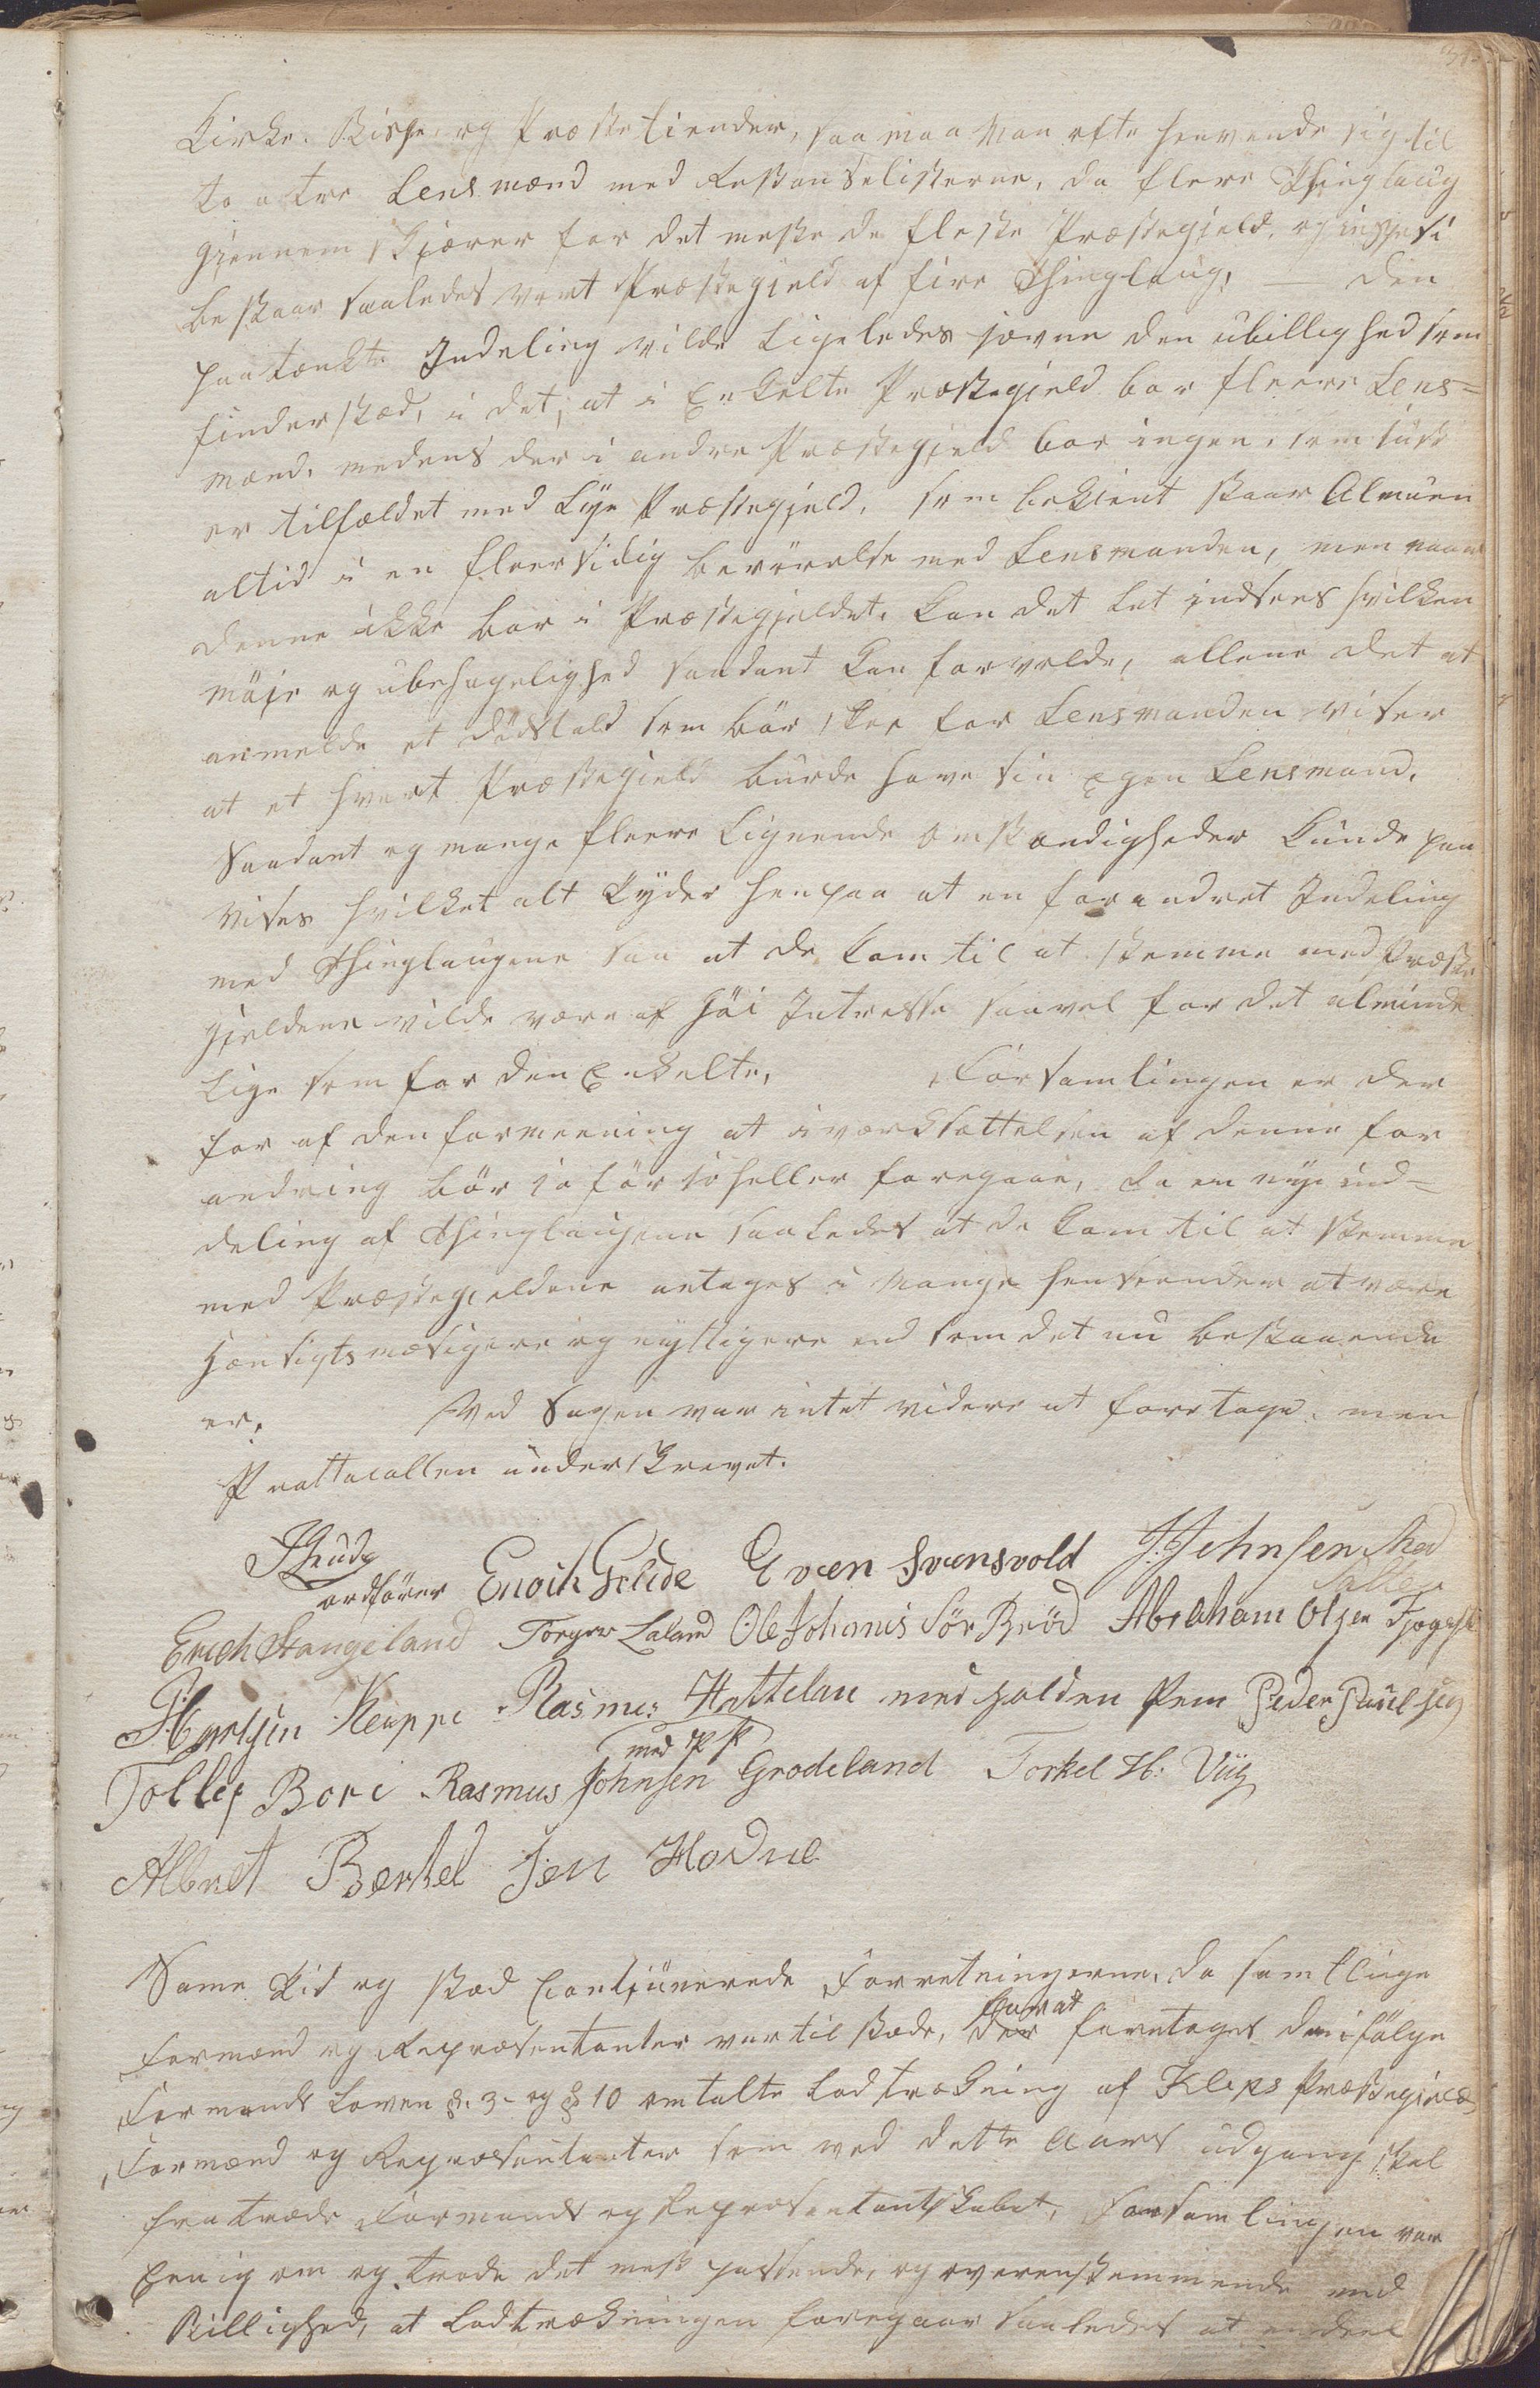 Kirke- Bispe- og Præstetiender, saa maa Man ofte henvende sig til
to a tre Lensmænd med Restanselisterne, da flere Thinglaug
gjennem skjærer for det meste de fleste Præstegjeld,
bestaar saaledes vort Præstegjeld af fire Thinglaug, — Den
paatænkte Indeling vilde ligeledes jævne den ubillighed som
finder stæd, i det, at i Enkelte Præstegjeld bor fleere Lens=
mænd, medens der i andre Præstegjeld bor ingen, som just
er tilfældet med Lye Præstegjeld, som bekient staar Almuen
altid i en fleersidig berörelse med Lensmanden, men naar
denne ikke bor i Præstegjeldet, kan det let indsees hvilken
möje og ubehagelighed saadant kan forvolde, allene det at
anmelde et dödsfald som bör skee for Lensmanden viser
at et hvert Præstegield burde have sin egen Lensmand.
Saadant og mange fleere Lignende Omstændigheder kunde paa
vises hvilket alt tyder hen paa at en forandret Indeling
med Thinglaugene saa at de kom til at stemme med Præste
gjeldene vilde være af höi Intresse saavel for det alminde
lige som for den Enkelte, Forsamlingen er der
for af den formeening at iværksættelsen af denne for
andring bör jo för jo heller foregaae, da en nye ind=
deling af Thinglaugene saaledes at de kom til at stemme
med Præstegjeldene antages i Mange henseender at være
Hænsigtsmæsigere og nyttigere end som det nu bestaaende
er. Ved Sagen var intet videre at foretage, men
Prottocollen underskrevet.
ordförer Enoch Grude Even Svensvold J. Johnsen
Erich Stangeland Torger Laland Ole Johanis Sör Bröd Abraham Olsen
Kleppe Rasmus Hattelan med holden Pen Peder Paulsen
med P P
Tollef Bore Rasmus Johnsen Grodeland Torkel H: Viig
Albret Bertel Sen Hodne
Same Tid og stæd Contjünerede Forretningerne, da samtlige
Formænd og Representanter var til stæde,
for at
der foretages den ifölge
Formands Loven §. 3- og § 10 omtalte Lodtrækning af Kleps Præstegield
Formænd og Representanter som ved dette Aars udgang skal
fratræde Formands og Representantskabet, Forsamlingen var
Eenig om og trode det mest passende, og overenstemmende med
Billighed, at Lodtrækningen foregaar saaledes at endeel